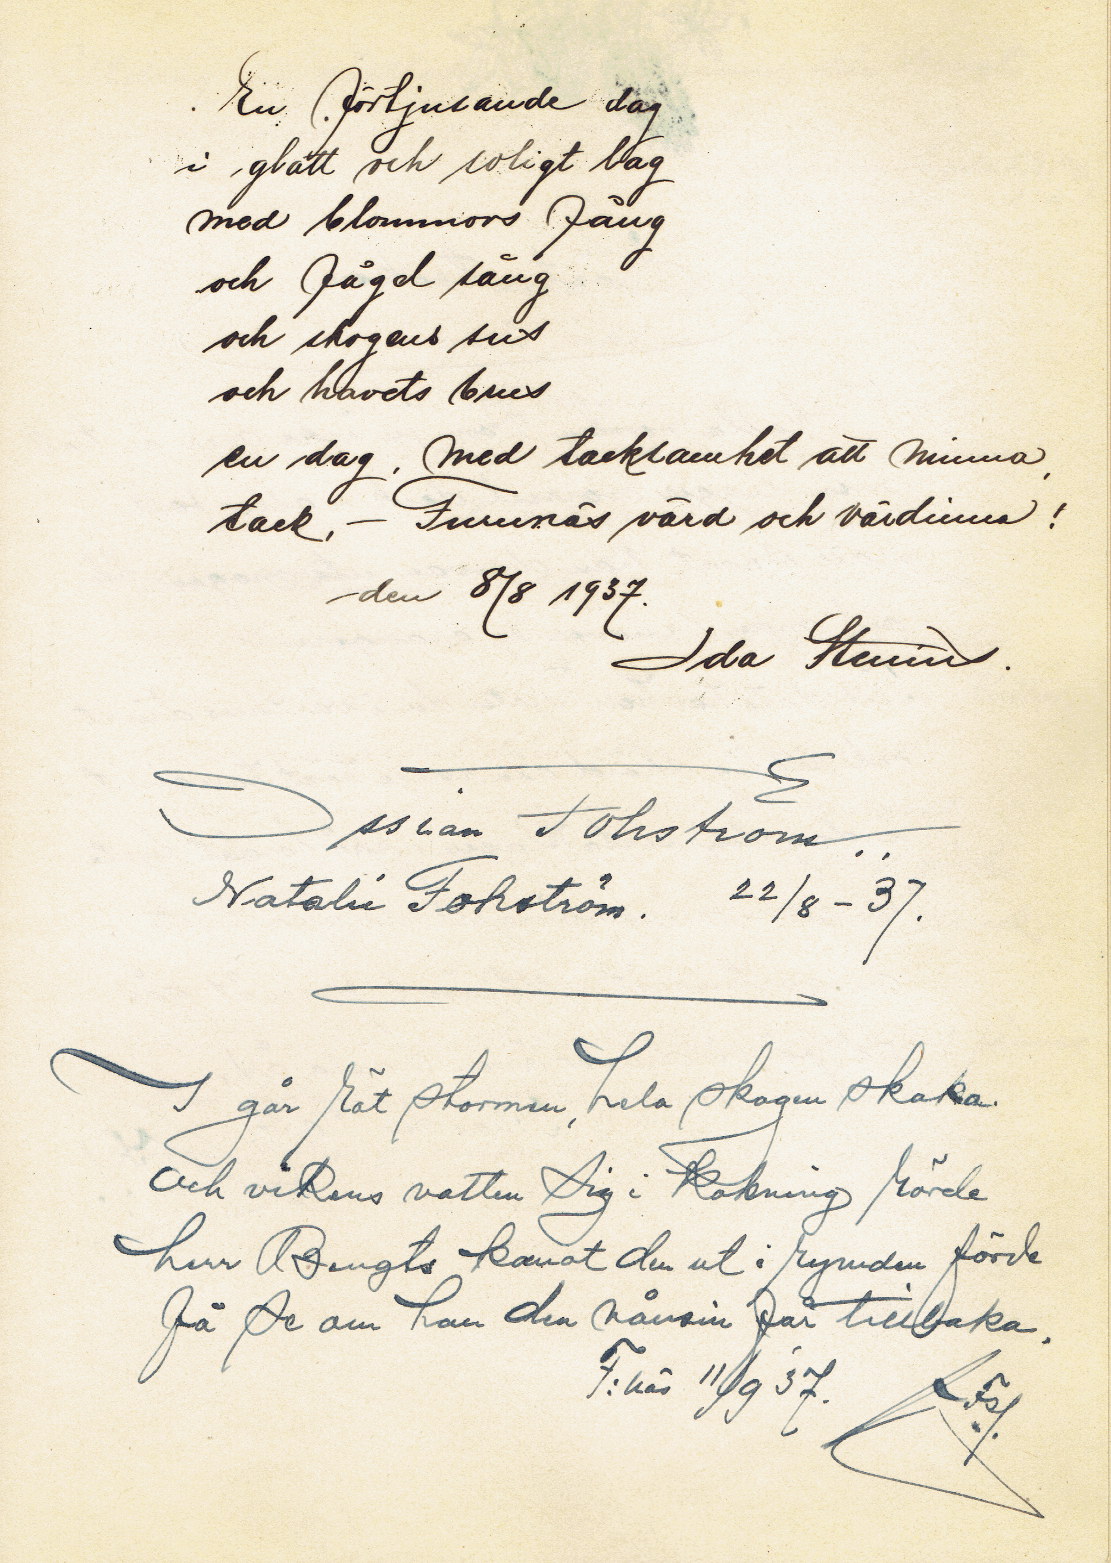 En förtjusande dag
i glatt och soligt lag
med blommors fång
och fågel sång
och skogens sus
och havets brus
en dag, med tacksamhet att minna,
tack, – Furunäs värd och värdinna!
den 8/8 1937.
Ida Stenius.
Ossian Fohström
Natalie Fohström. 22/8 – 37.
I går röt stormen, hela skogen skaka.
Och vikens vatten sig i kokning rörde
herr Bengts kanot den ut i rymden förde
få se om han den nånsin får tillbaka.
F:näs 11/9 37.